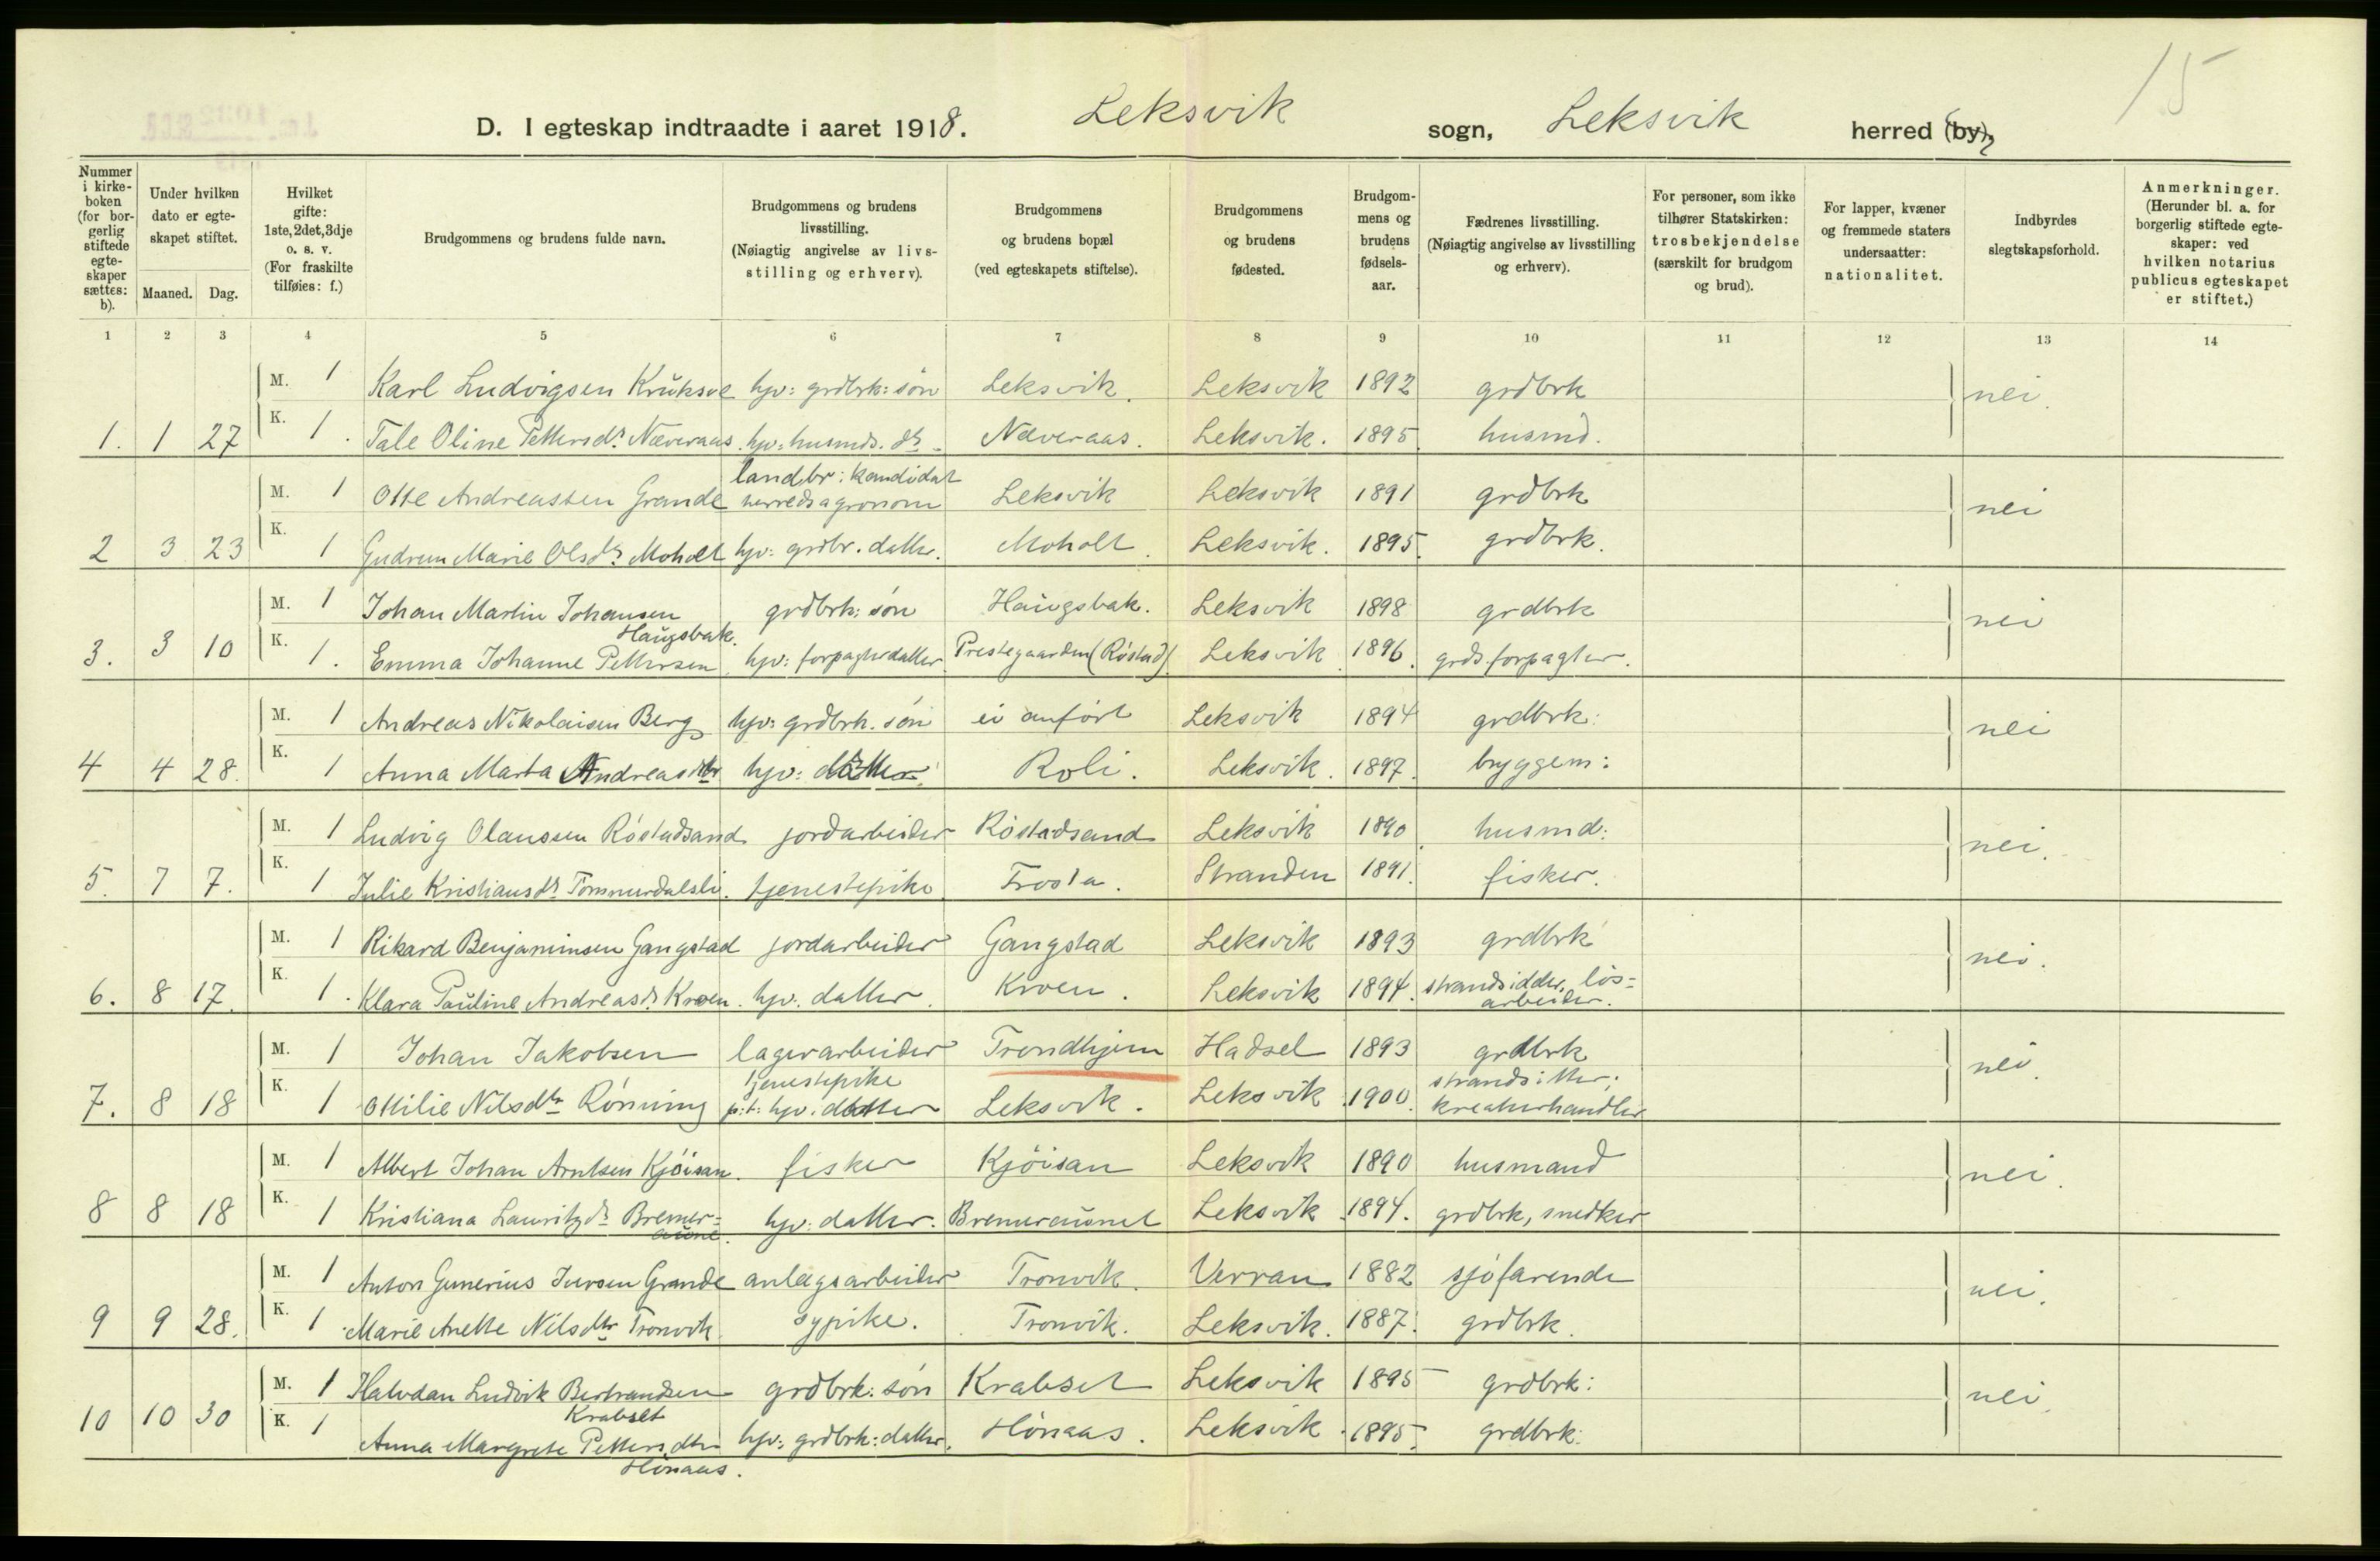 15
D. I egteskap indtraadte i aaret 1918. Leksvik sogn, Leksvik herred (by),
Nummer i kirke-boken (for bor-gerlig stiftede egte-skaper sættes: b).
Under hvilken dato er egte-skapet stiftet.
Maaned. Dag.
Hvilket gifte: 1ste, 2det, 3dje o. s. v. (For fraskilte tilføies: f.)
Brudgommens og brudens fulde navn.
Brudgommens og brudens livsstilling. (Nøiagtig angivelse av livs-stilling og erhverv).
Brudgommens og brudens bopæl (ved egteskapets stiftelse).
Brudgommens og brudens fødested.
Brudgom-mens og brudens fødsels-aar.
Fædrenes livsstilling. (Nøiagtig angivelse av livsstilling og erhverv).
For personer, som ikke tilhører Statskirken: trosbekjendelse (særskilt for brudgom og brud).
For lapper, kvæner og fremmede staters undersaatter: nationalitet.
Indbyrdes slegtskapsforhold.
Anmerkninger. (Herunder bl. a. for borgerlig stiftede egte-skaper: ved hvilken notarius publicus egteskapet er stiftet.)
1 2 3 4 5 6 7 8 9 10 11 12 13 14
M. 1 Karl Ludvigsen Kruksve hjv: grdbrk: søn Leksvik. Leksvik 1892 grdbrk nei.
1. 1 27 K. 1. Tale Oline Pettersdr. Næveraas. hjv: husmds. dtr. Næveraas. Leksvik. 1895 husmd.
M. 1 Otte Andreassen Grande landbr: kandidat herredsagronom Leksvik Leksvik 1891 grdbrk nei
2 3 23 K. 1 Gudrun Marie Olsdr. Moholt hjv: grdbr. datter. Moholt. Leksvik. 1895. grdbrk.
M. 1 Johan Martin Johansen Haugsbak. grdbrk: søn Haugsbak. Leksvik 1898 grdbrk nei
3. 3 10 K. 1. Emma Johanne Pettersen hjv: forpagterdatter Prestegaarden (Røstad) Leksvik 1896. grds. forpagter.
M. 1 Andreas Nikolaisen Berg hjv: grdbrk. søn ei anført Leksvik 1894 grdbrk: nei
4 4 28. K. 1 Anna Marta Andreasdtr hjv: datter Roli. Leksvik. 1897. byggem:
M. 1 Ludvig Olaussen Røstadsand jordarbeider Røstadsand Leksvik 1890 husmd: nei.
5. 7 7. K. 1 Julie Kristiansdr. Tømmerdalsli. tjenestepike Frosta. Stranden 1891. fisker.
M. 1 Rikard Benjaminsen Gangstad jordarbeider Gangstad Leksvik 1893 grdbrk nei.
6. 8 17. K. 1. Klara Pauline Andreasdr. Kroen. hjv. datter. Kroen. Leksvik 1894. strandsidder, løs=arbeider.
M. 1 Johan Jakobsen lagerarbeider Trondhjem Hadsel 1893 grdbrk nei.
7. 8 18 K. 1 Ottilie Nilsdtr Rönning tjenestepike p:t: hjv: datter Leksvik. Leksvik 1900. strandsitter; kreaturhandler
M. 1 Albert Johan Arntsen Kjöisan. fisker Kjöisan Leksvik 1890 husmand nei.
8 8 18 K. 1 Kristiana Lauritzdr. Bremer=aune. hjv: datter. Bremeraunet Leksvik 1894. grdbrk, snedker
M. 1 Anton Gunerius Iversen Grande anlægsarbeider Tronvik. Verran 1882 sjøfarende nei.
9 9 28. K. 1 Marie Anette Nilsdtr Tronvik sypike. Tronvik. Leksvik. 1887. grdbrk.
M. 1 Halvdan Ludvik Bertrandsen Krabset grdbrk: søn Krabset Leksvik 1895 grdbrk: nei.
10 10 30 K. 1 Anna Margrete Pettersdtr Hönaas. hjv: grdbrk: datter. Hönaas. Leksvik. 1895. grdbrk: